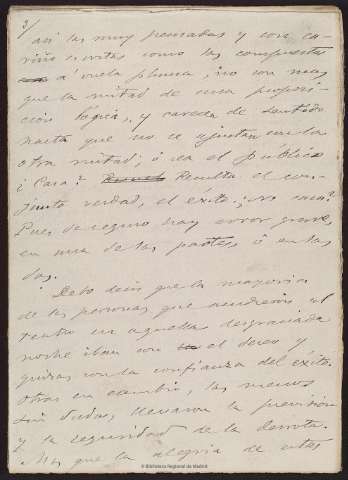 3/
así las muy pensadas y con ca-
riño escritas como las compuestas
á vuela pluma, no son mas
que la mitad de una proposi-
ción lógica, y carece de sentido
hasta que no se ajustan con la
otra mitad; ó sea el público
¿Casa? Resulta el con-
junto verdad, el éxito; ¿no casa?
Pues de seguro hay error grave,
en una de las partes ó en las
dos.
Debo decir que la mayoria
de las personas que acudieron al
teatro en aquella desgraciada
noche iban con el deseo y
quizas con la confianza del éxito.
Otras en cambio, las menos
sin duda, llevaron la previsión
y la seguridad de la derrota.
Mas que la alegria de estas
© Biblioteca Regional de Madrid